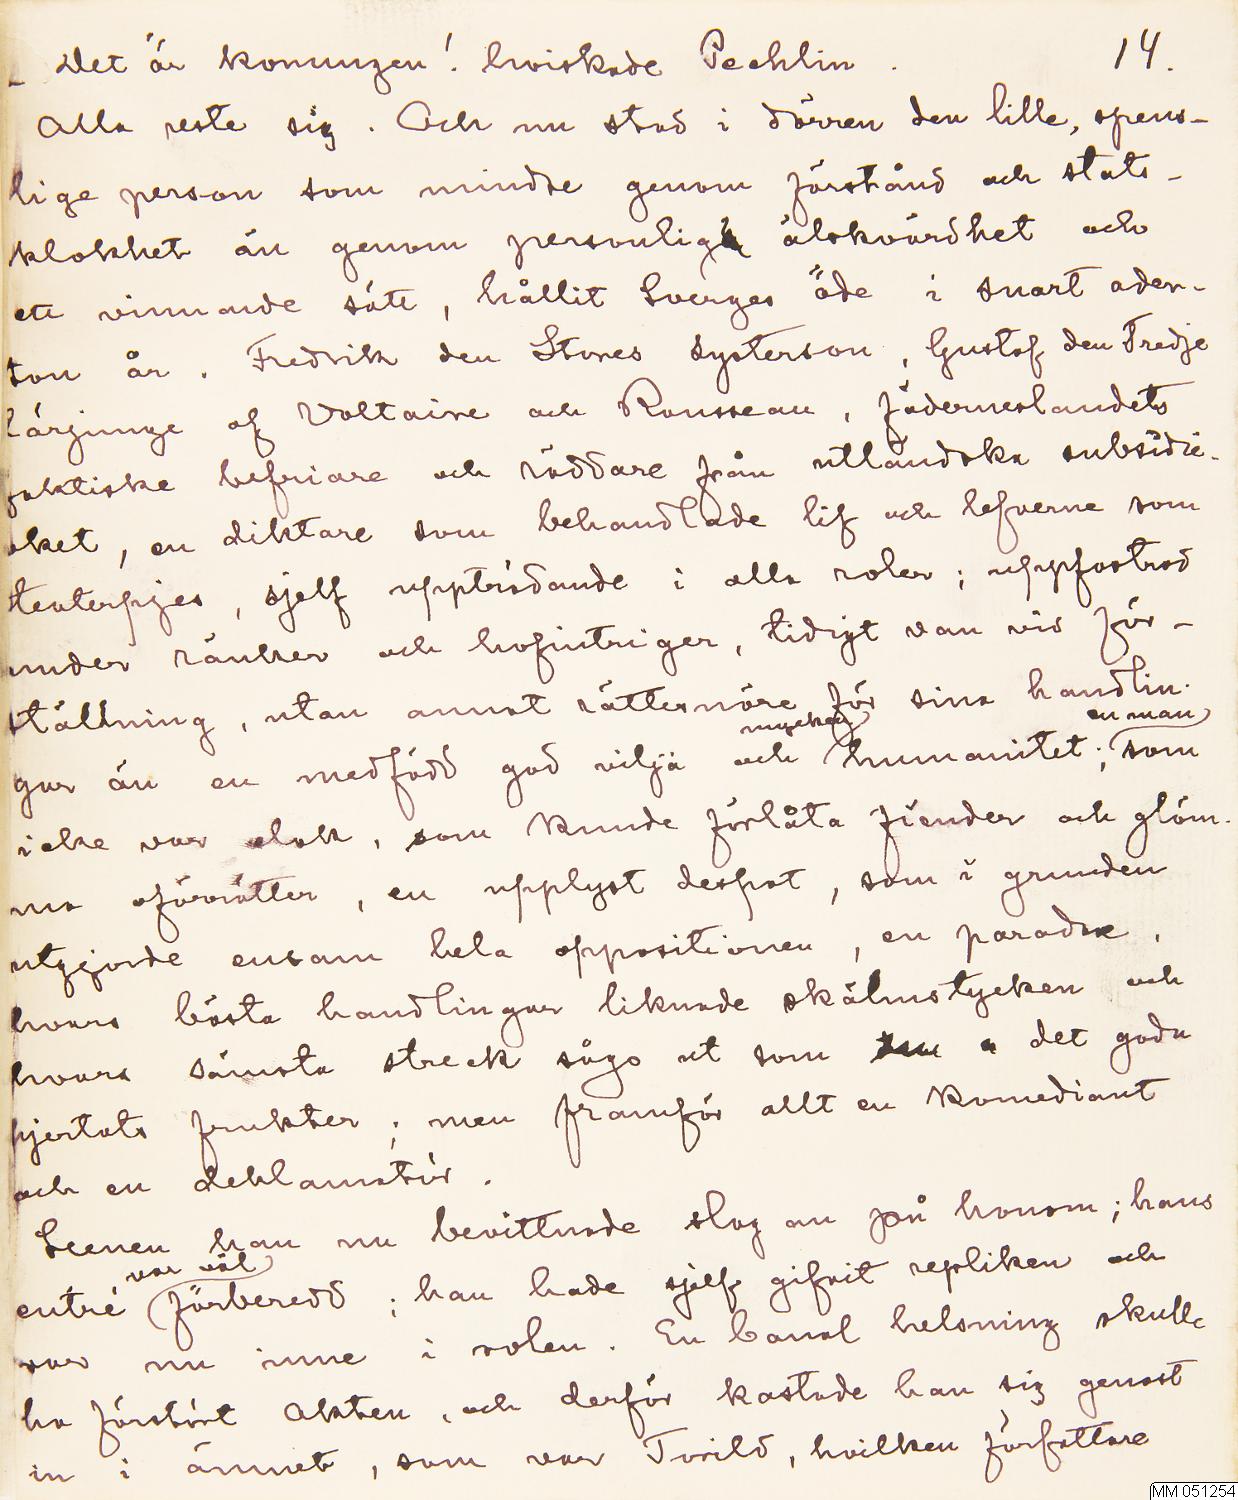 14.
– Det är konungen! hviskade Pechlin.
Alla reste sig. Och nu stod i dörren den lille, spens-
lige person som mindre genom förstånd och stats-
klokhet än genom personlig älskvärdhet och
ett vinnande sätt, hållit Sverges öde i snart ader-
ton år. Fredrik den Stores systerson, Gustaf den Tredje
lärjunge af Voltaire och Rousseau, fäderneslandets
faktiske befriare och räddare från utländska subsidie-
oket, en diktare som behandlade lif och lefverne som
teaterpjes, sjelf uppträdande i alla roler; uppfostrad
under ränker och hofintriger, tidigt van vis för-
ställning, utan annat rättesnöre för sina handlin-
gar än en medfödd god vilja och mycken humanitet; en man som
icke var elak, som kunde förlåta fiender och glöm-
ma oförrätter, en upplyst despot, som i grunden
utgjorde ensam hela oppositionen, en paradox,
hvars bästa handlingar liknade skälmstycken och
hvars sämsta streck sågo ut som det goda
hjertats frukter; men framför allt en komediant
och en deklamatör.
Scenen han nu bevittnade slog an på honom; hans
entré var väl förberedd; han hade sjelf gifvit repliken och
var nu inne i rolen. En banal helsning skulle
ha förstört akten, och derför kastade han sig genast
in i ämnet, som var Torild, hvilken författare
MM 051254